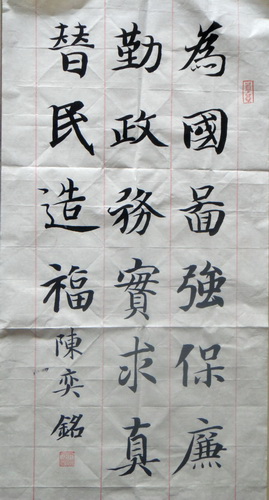 為國圖強保廉
勤政務實求真
替民造福
陳奕銘